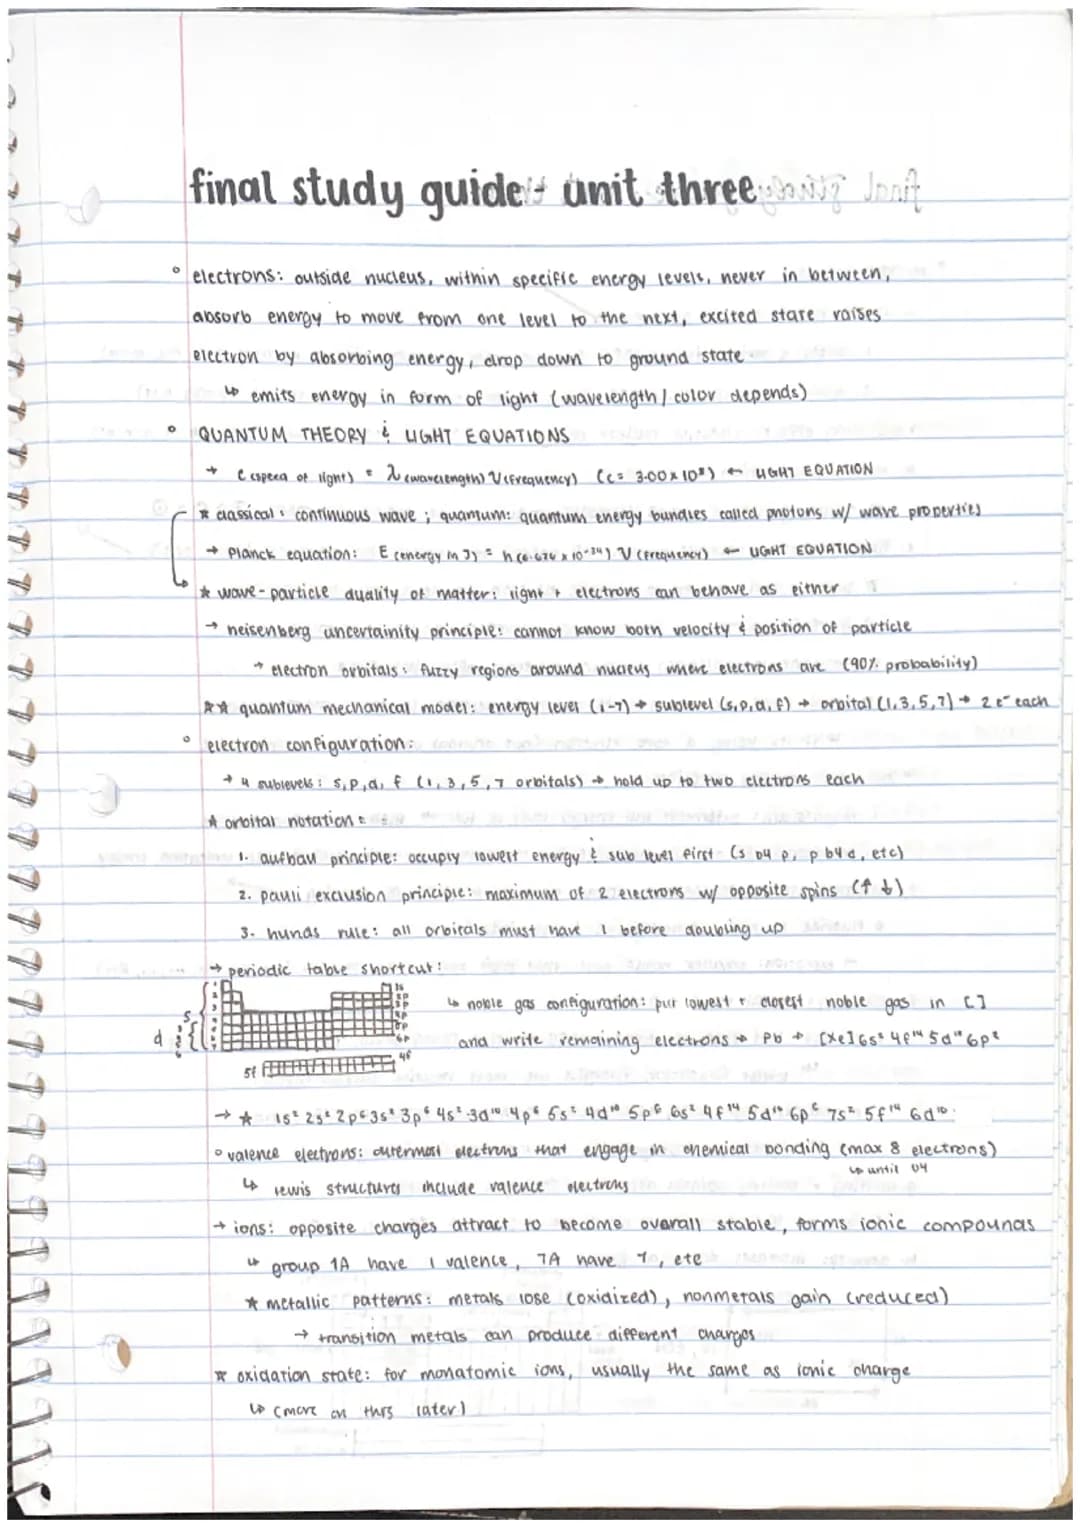 final study guide - unit three
° electrons: outside nucleus, within specific energy levels, never in between,
absorb energy to move from one level to the next, excited state raises
electron by absorbing energy, drop down to ground state
↳ emits energy in form of light (wavelength / color depends)
° QUANTUM THEORY & LIGHT EQUATIONS
→ c (speed of light) = λ (wavelength) ν (frequency) (c = 3.00 x 10⁸) ← LIGHT EQUATION
* classical: continuous wave; quantum: quantum energy bundles called photons w/ wave properties
→ Planck equation: E (energy in J) = h (6.626 x 10⁻³⁴) ν (frequency) ← LIGHT EQUATION
* wave-particle duality of matter: light + electrons can behave as either
→ heisenberg uncertainity principle: cannot know both velocity & position of particle
→ electron orbitals: fuzzy regions around nucleus where electrons are (90% probability)
** quantum mechanical model: energy level (1-7) → sublevel (s,p,d,f) → orbital (1,3,5,7) → 2e⁻ each
° electron configuration:
→ 4 sublevels: s,p,d,f (1,3,5,7 orbitals) → hold up to two electrons each
* orbital notation:
1. aufbau principle: occupy lowest energy & sub level first (s b4 p, p b4 d, etc)
2. pauli exclusion principle: maximum of 2 electrons w/ opposite spins (↑↓)
3. hunds rule: all orbitals must have 1 before doubling up
→ periodic table shortcut:
1 2 3 4 5 6 7
s
d 3 4 5 6
1s 2p 3p 4p 5p 6p
4f
5f
↳ noble gas configuration: put lowest + closest noble gas in [ ]
and write remaining electrons → Pb → [Xe] 6s² 4f¹⁴ 5d¹⁰ 6p²
→ * 1s² 2s² 2p⁶ 3s² 3p⁶ 4s² 3d¹⁰ 4p⁶ 5s² 4d¹⁰ 5p⁶ 6s² 4f¹⁴ 5d¹⁰ 6p⁶ 7s² 5f¹⁴ 6d¹⁰
° valence electrons: outermost electrons that engage in chemical bonding (max 8 electrons)
↳ until U4
↳ lewis structures include valence electrons
→ ions: opposite charges attract to become overall stable, forms ionic compounds
↳ group 1A have 1 valence, 7A have 7, etc
* metallic patterns: metals lose (oxidized), nonmetals gain (reduced)
→ transition metals can produce different charges
* oxidation state: for monatomic ions, usually the same as ionic charge
↳ (more on this later)